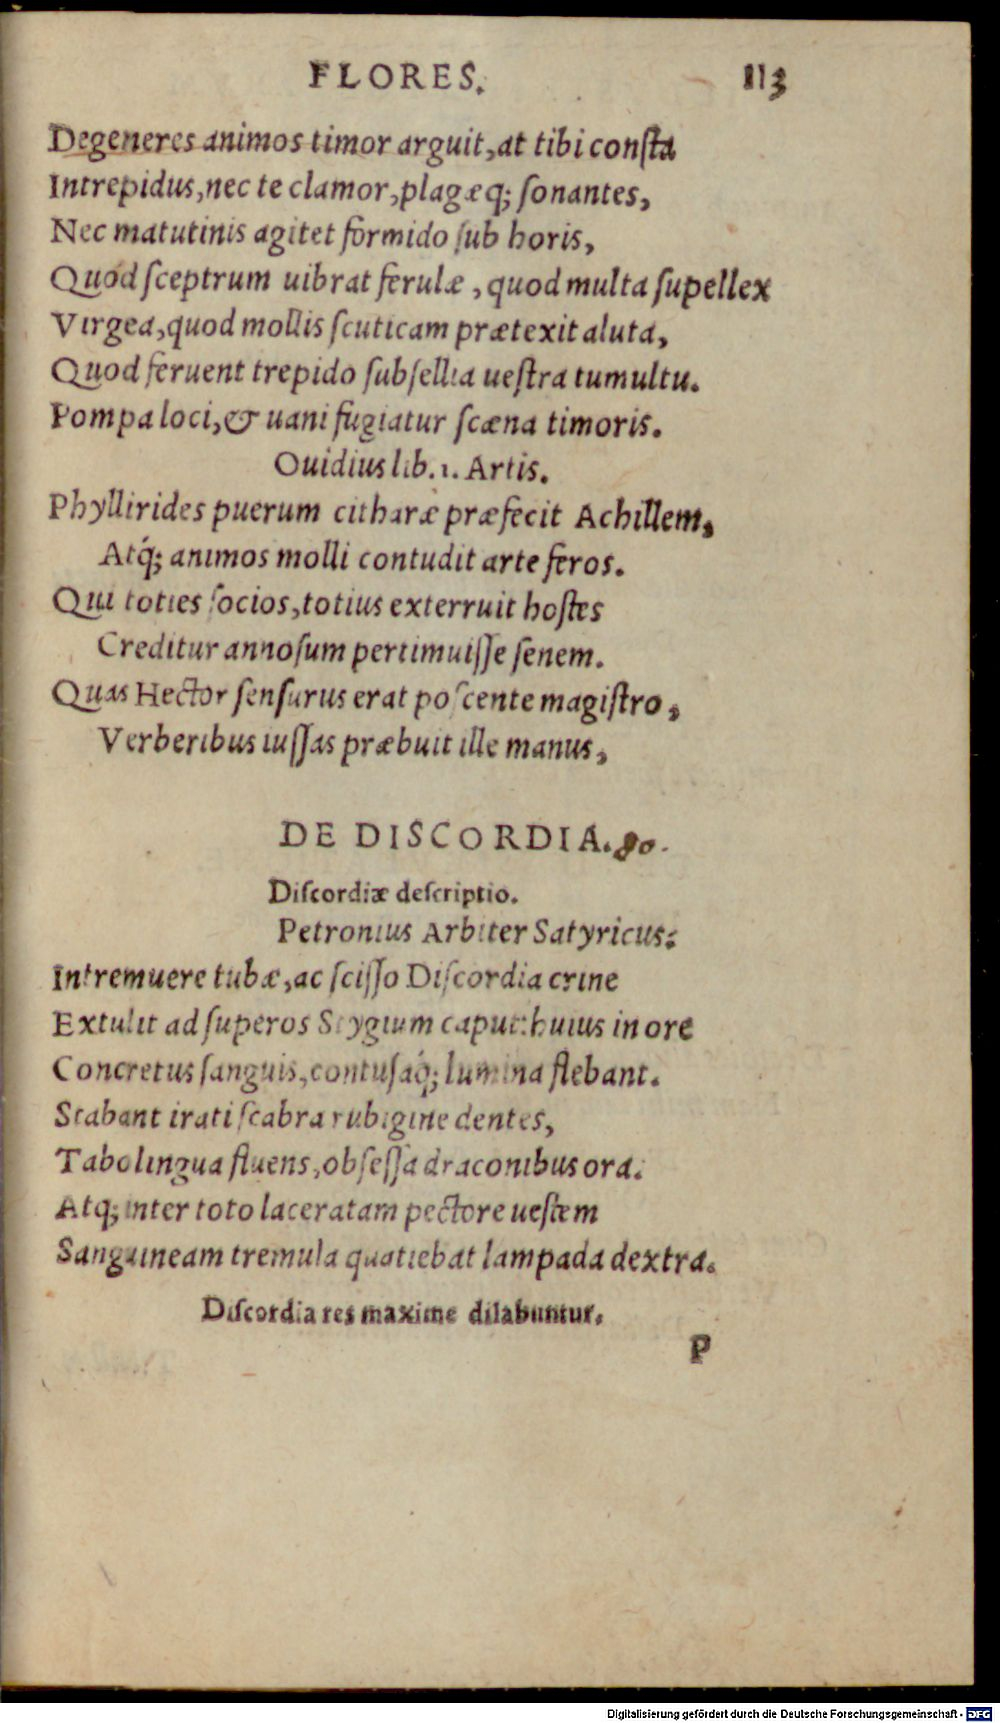 FLORES. 113
Degeneres animos timor arguit, at tibi consta
Intrepidus, nec te clamor, plagæq; ſonantes,
Nec matutinis agitet formido ſub horis,
Quod ſceptrum uibrat ferulæ, quod multa ſupellex
Virgea, quod mollis ſcuticam prætexit aluta,
Quod feruent trepido ſubſellia ueſtra tumultu.
Pompa loci, & uani fugiatur ſcæna timoris.
Ouidius lib. 1. Artis.
Phyllirides puerum citharæ præfecit Achillem,
Atq́; animos molli contudit arte feros.
Qui toties ſocios, totius exterruit hoſtes
Creditur annoſum pertimuiſſe ſenem.
Quas Hector ſenſurus erat poſcente magiſtro,
Verberibus iuſſas præbuit ille manus,
DE DISCORDIA. 80.
Diſcordiæ deſcriptio.
Petronius Arbiter Satyricus:
Intremuere tubæ, ac ſciſſo Diſcordia crine
Extulit ad ſuperos Stygium caput: huius in ore
Concretus ſanguis, contuſaq́; lumina flebant.
Stabant irati ſcabra rubigine dentes,
Tabo lingua fluens, obſeſſa draconibus ora.
Atq; inter toto laceratam pectore ueſtem
Sanguineam tremula quatiebat lampada dextra.
Diſcordia res maxime dilabuntur.
P
Digitalisierung gefördert durch die Deutsche Forschungsgemeinschaft - DFG